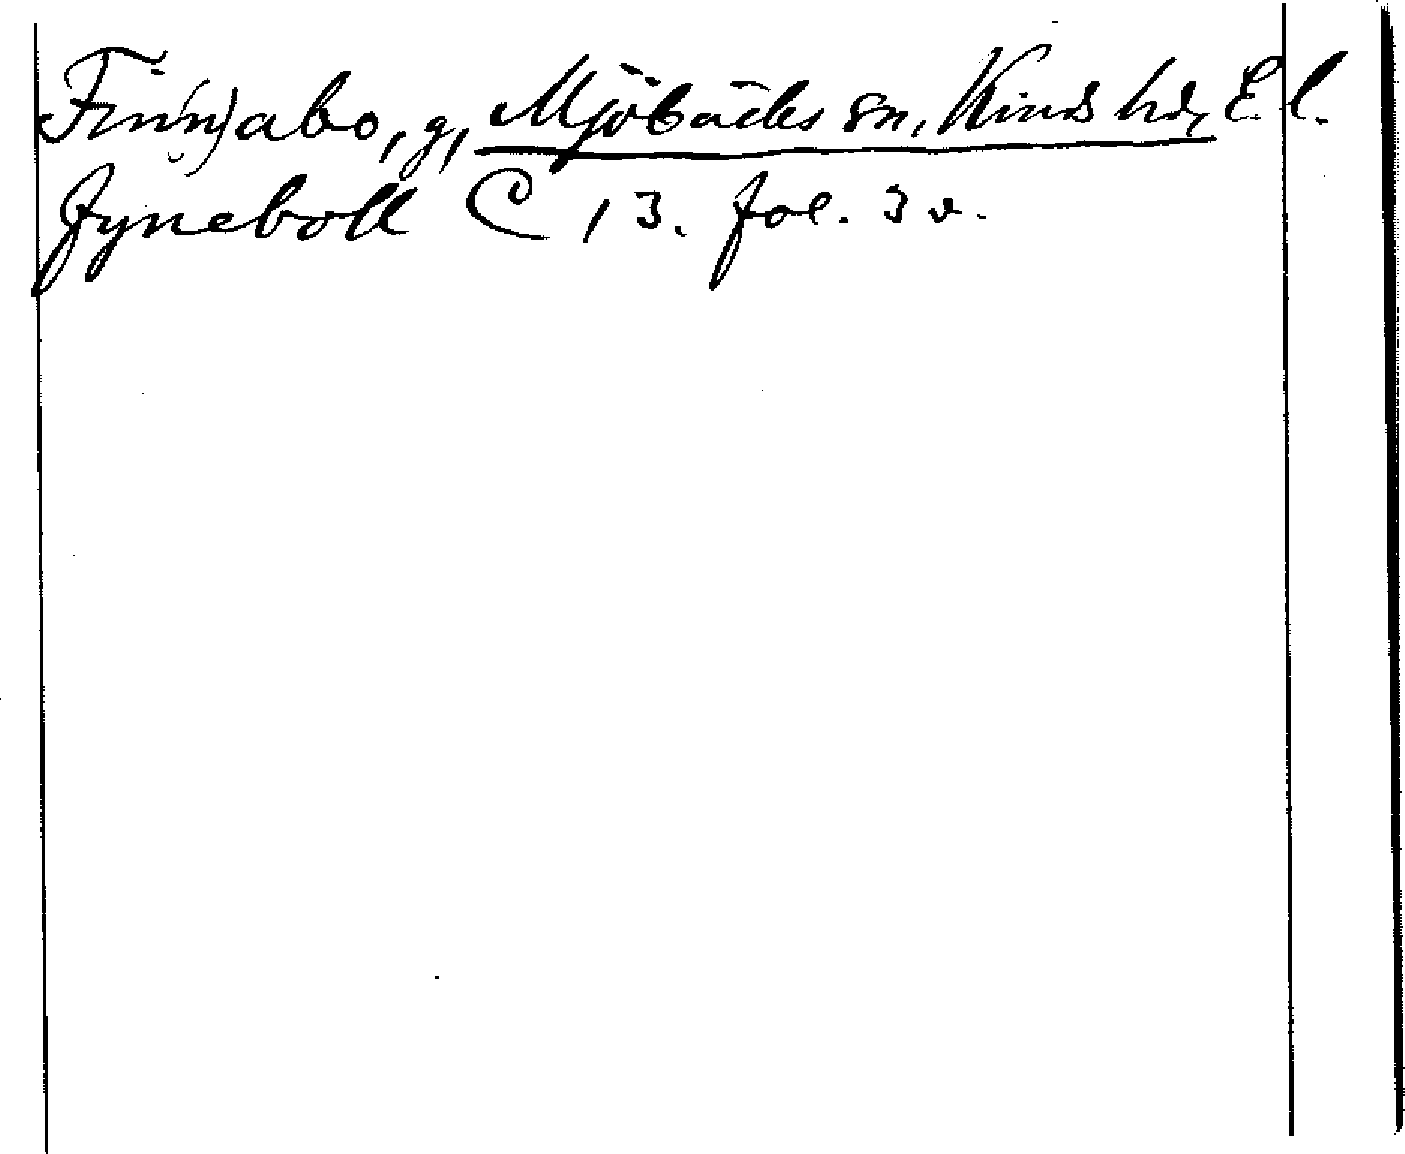 Fin(n)abo, g, Mjöbäcks sn, Kinds hd, E.l.
fyneboll C 13. fol. 3 v.